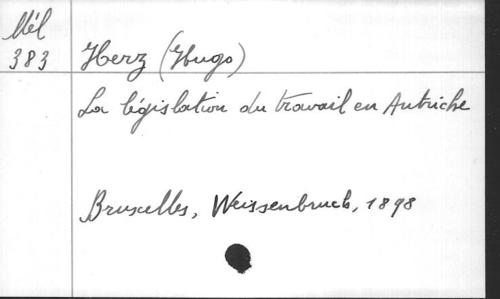 Mél
383
Herz (Hugo)
La législation du travail en Autriche
Bruxelles, Weissenbruch, 1898